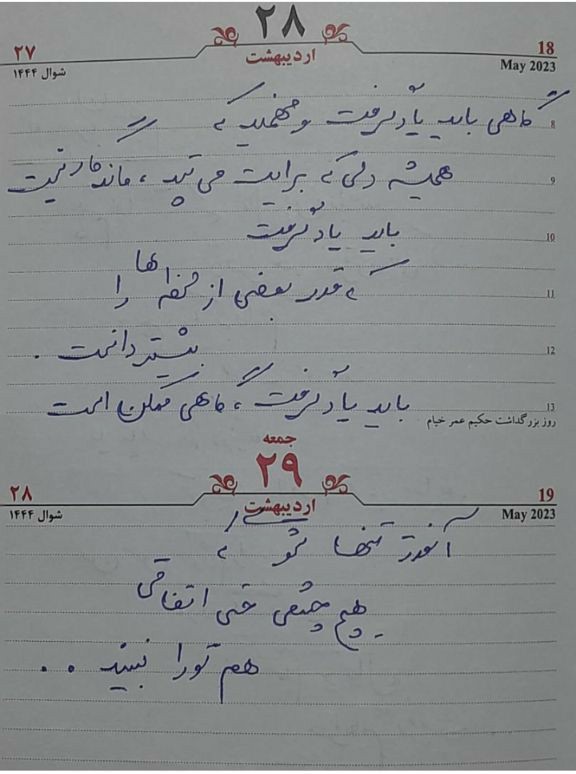 ۲۸
۲۷ اردیبهشت 18
شوال ۱۴۴۴ May 2023
گاهی باید یاد گرفت و فهمید که
8
همیشه دلی که برایت می تپد، ماندگار نیست
9
باید یاد گرفت
10
که قدر بعضی از لحظه ها را
11
بیشتر دانست .
12
باید یاد گرفت گاهی ممکن است
13
روز بزرگداشت حکیم عمر خیام
جمعه
۲۹
۲۸ اردیبهشت 19
شوال ۱۴۴۴ May 2023
آنقدر تنها شوی که
هیچ چشمی حتی اتفاقی
هم تو را نبیند . .